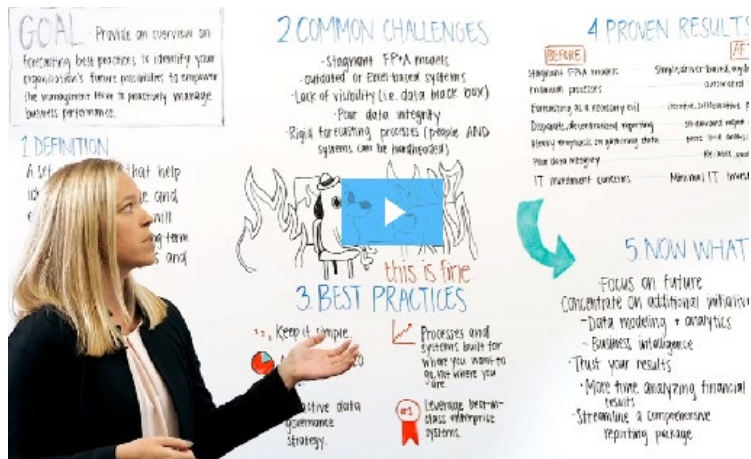 GOAL: Provide an overview on
forecasting best practices to identify your
organization's future possibilities to empower
the management team to proactively manage
business performance.
1. DEFINITION
A set that help
and
will
term
and
2. COMMON CHALLENGES
·Stagnant FP+A models
·Outdated or Excel-based systems
·Lack of visibility (i.e. data black box)
·Poor data integrity
·Rigid forecasting processes (people AND
systems can be hardheaded)
this is fine
3. BEST PRACTICES
Keep it simple.
active data
governance
strategy.
Processes and
systems built for
where you want to
go, not where you
are.
#1 Leverage best-in-
class enterprise
systems.
4. PROVEN RESULTS
BEFORE
Stagnant FP+A models
Manual processes
automated
Forecasting as a necessary evil
Disparate, decentralized reporting
Heavy emphasis on gathering data
Poor data integrity
IT investment concerns
Minimal IT
5. NOW WHAT
·Focus on future
Concentrate on additional
-Data modeling + analytics
-Business intelligence
·Trust your results
·More time analyzing financial
results
·Streamline a comprehensive
reporting package